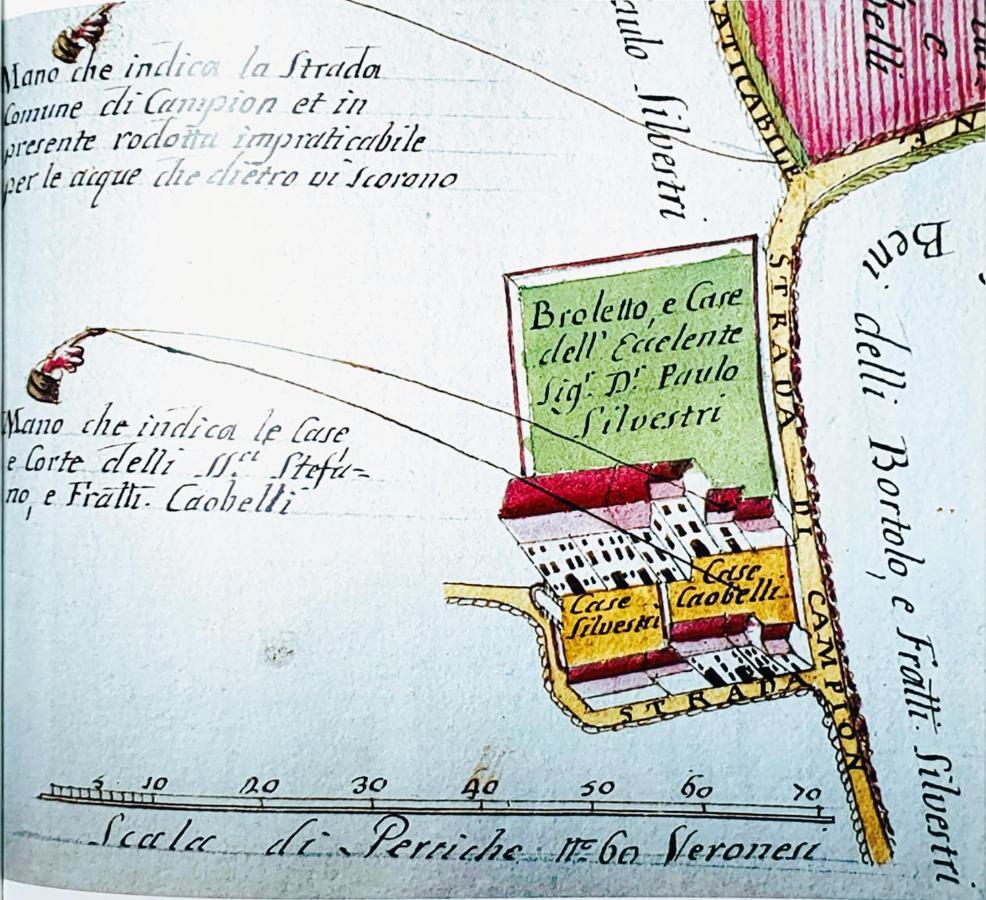 Mano che indica la Strada
Comune di Campion et in
presente rodotta impraticabile
per le acque che dietro vi scorono
aulo Silvestri
ATICABILE
elli
e
AN
Beni delli Bortolo, e Fratti. Silvestri
STRADA DI CAMPION
Broletto, e Case
dell' Eccelente
Sigr. Dr. Paulo
Silvestri
Mano che indica le Case
e Corte delli SS.ri Stefa=
no, e Fratti. Caobelli
Case
Caobelli
Case
Silvestri
STRADA
5 10 20 30 40 50 60 70
Scala di Pertiche no. 60 Veronesi